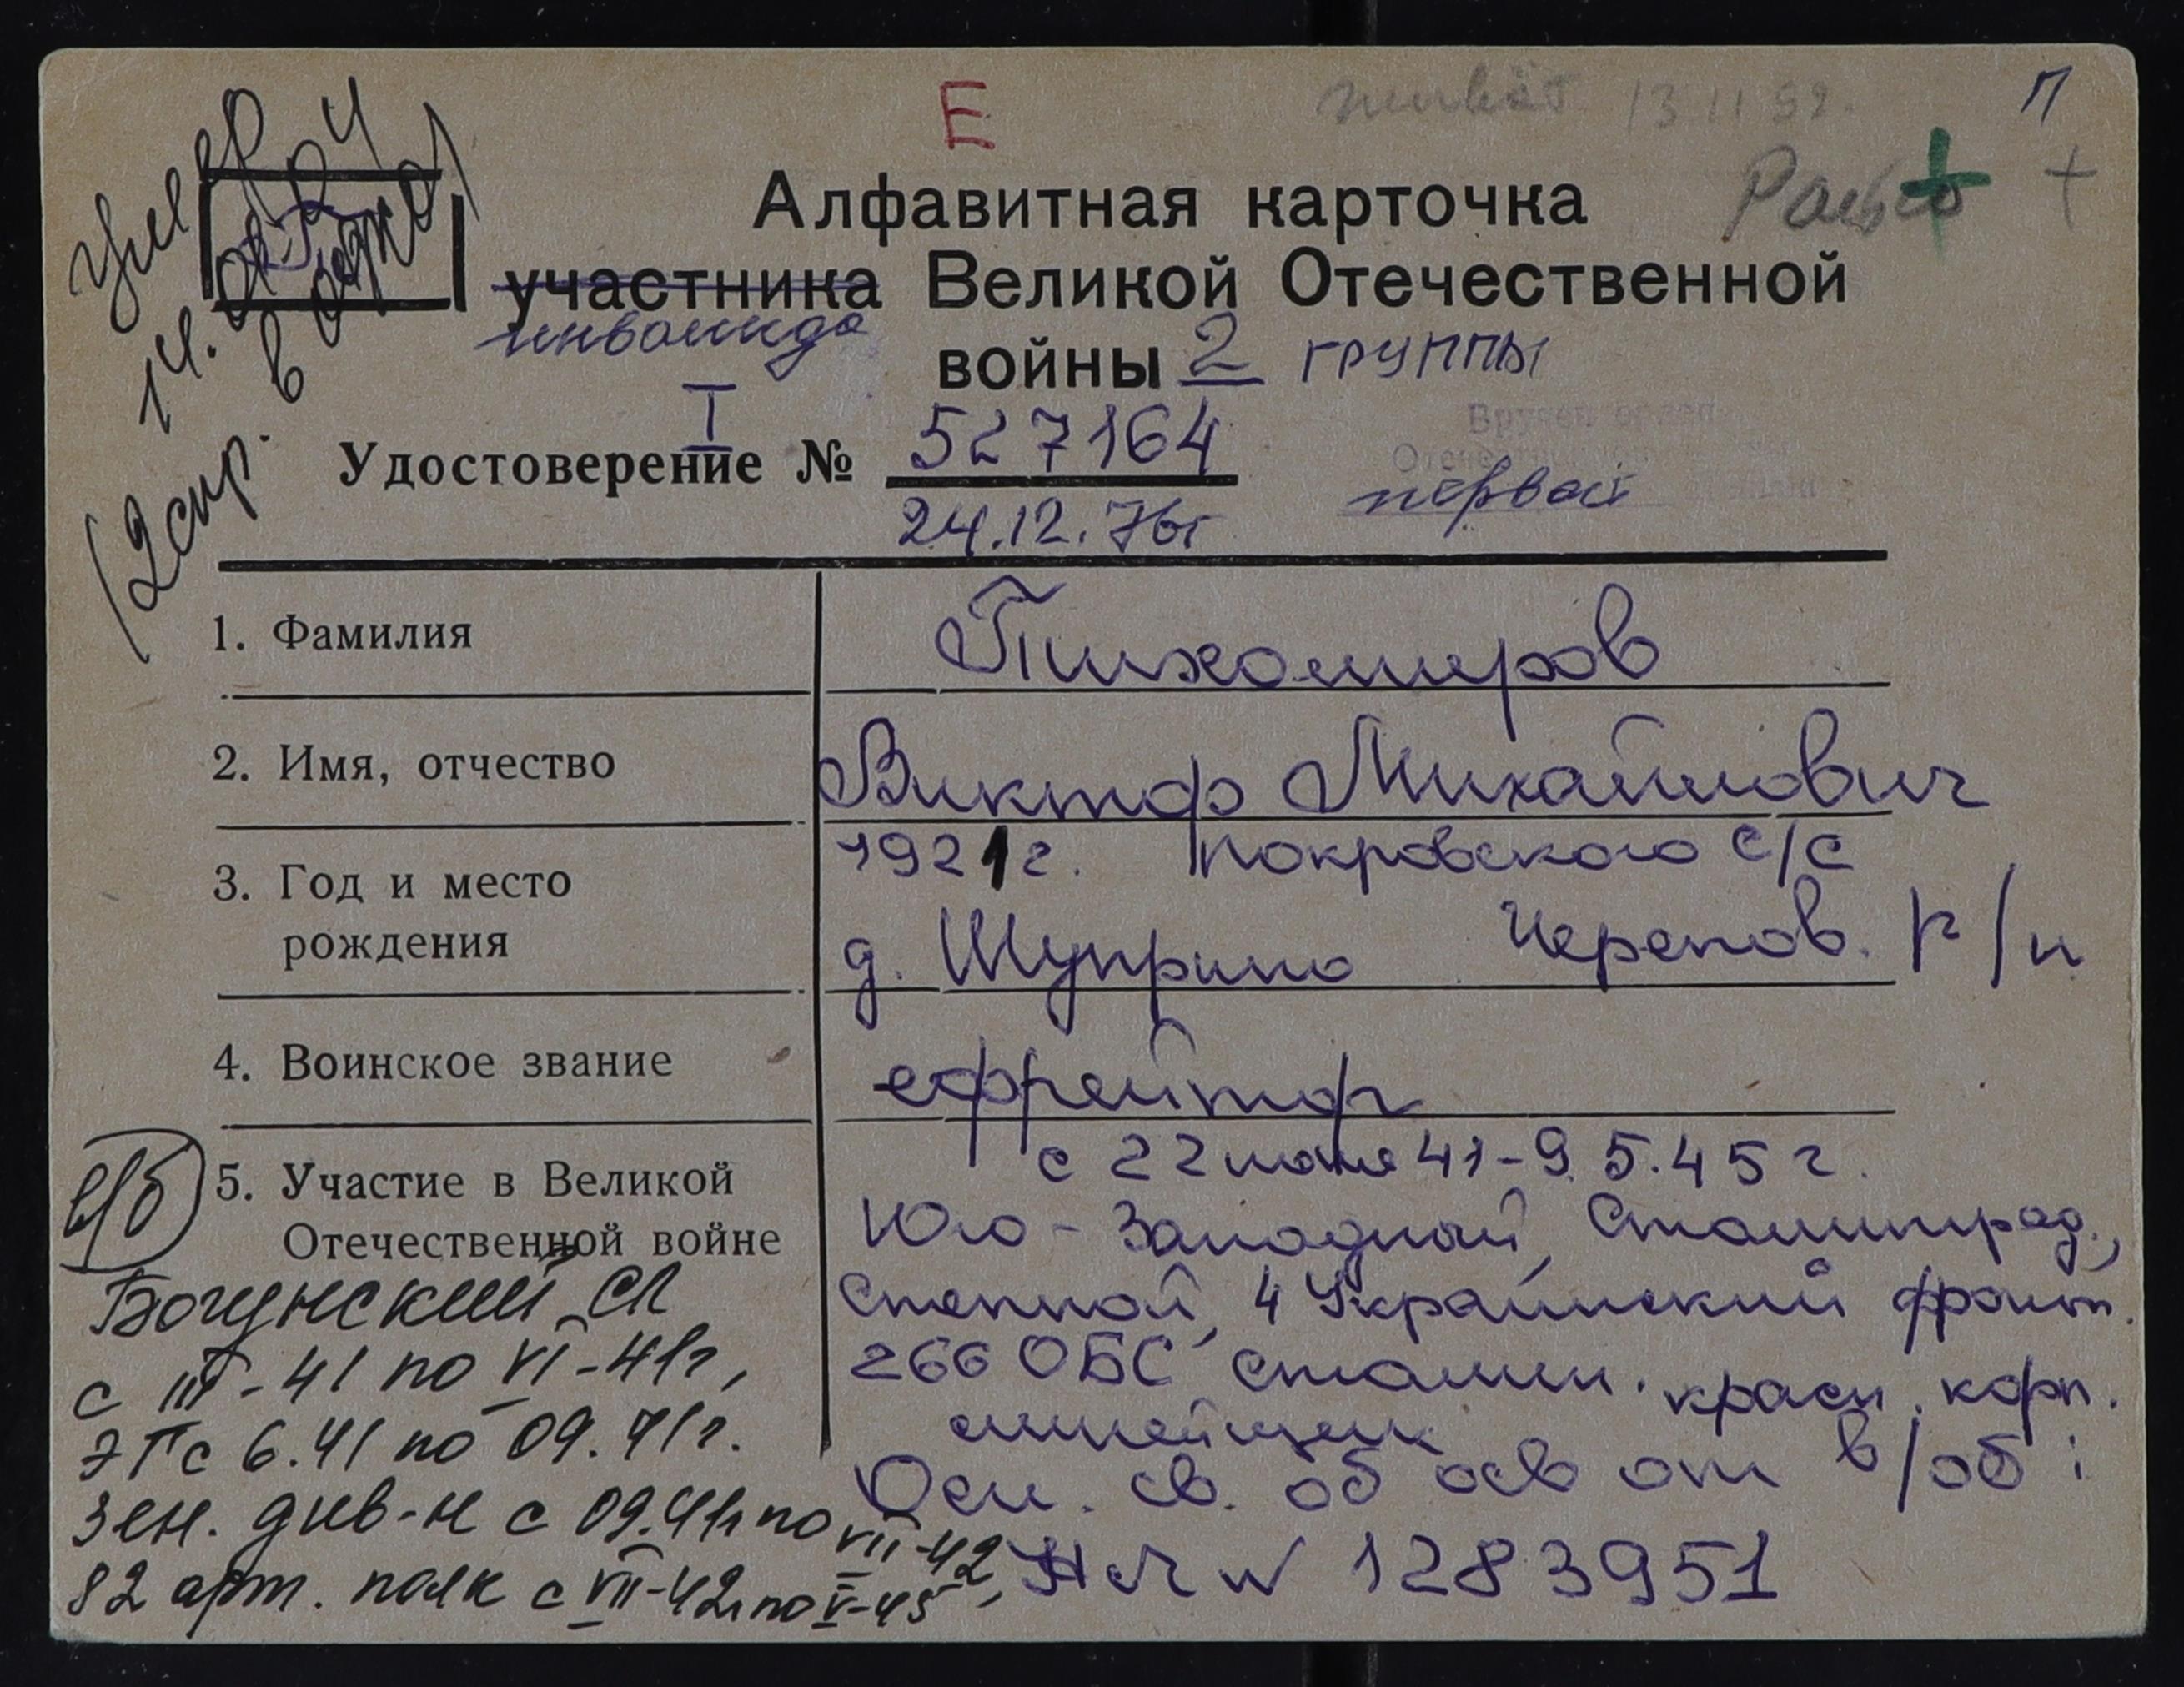 Е
13 11 92.
П
умер
14.01.04
(2 спр.
в отд)
Алфавитная карточка
участника Великой Отечественной
инвалида
войны 2 группы
Вручен орден
I
Удостоверение № 527164
первой
24.12.76г
1. Фамилия
Тихомиров
2. Имя, отчество
Виктор Михайлович
3. Год и место рождения
1921 г. Покровского с/с
д. Шуприно Черепов. р/н
4. Воинское звание
ефрейтор
5. Участие в Великой
Отечественной войне
с 22 июня 41-9.5.45 г.
Юго-Западный, Сталинград.,
Степной, 4 Украинский фронт.
266 ОБС Сталин. красн. корп.
линейщик
Осн. св. об осв от в/об:
НА № 1283951
Богунский СП
с III-41 по VI-41г,
ЭГ с 6.41 по 09.41г.
Зен. див-н с 09.41г по VII-42,
82 арт. полк с VII-42г по V-45